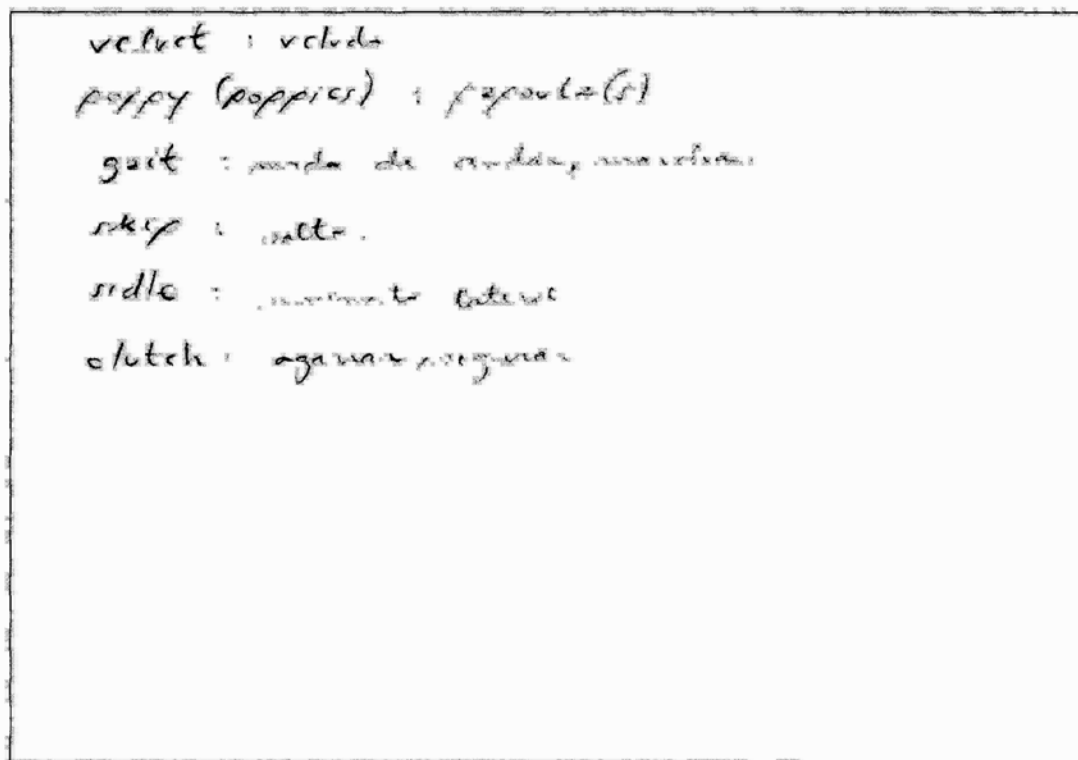 velvet : veludo
poppy (poppies) : papoula(s)
gait : modo de andar, marchar
skip : salto.
sidle : movimento lateral
clutch : agarrar, segurar